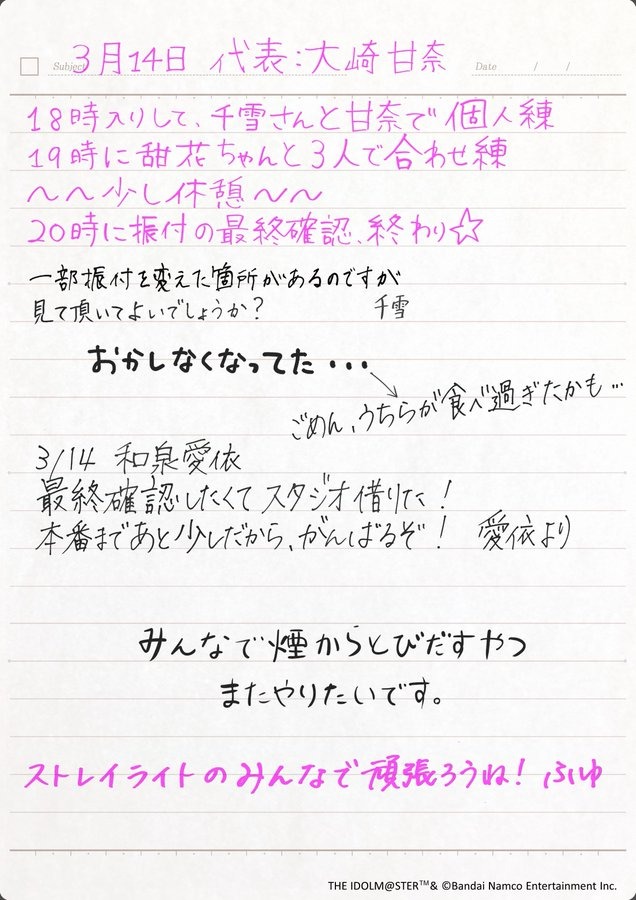 Subject
3月14日 代表:大崎甘奈
Date / /
18時入りして、千雪さんと甘奈で個人練
19時に甜花ちゃんと3人で合わせ練
〜〜少し休憩〜〜
20時に振付の最終確認、終わり☆
一部振付を変えた箇所があるのですが
見て頂いてよいでしょうか? 千雪
おかしなくなってた・・・
ごめん、うちらが食べ過ぎたかも…
3/14 和泉愛依
最終確認したくてスタジオ借りた!
本番まであと少しだから、がんばるぞ! 愛依より
みんなで煙からとびだすやつ
またやりたいです。
ストレイライトのみんなで頑張ろうね! ふゆ
THE IDOLM@STER™& ©Bandai Namco Entertainment Inc.